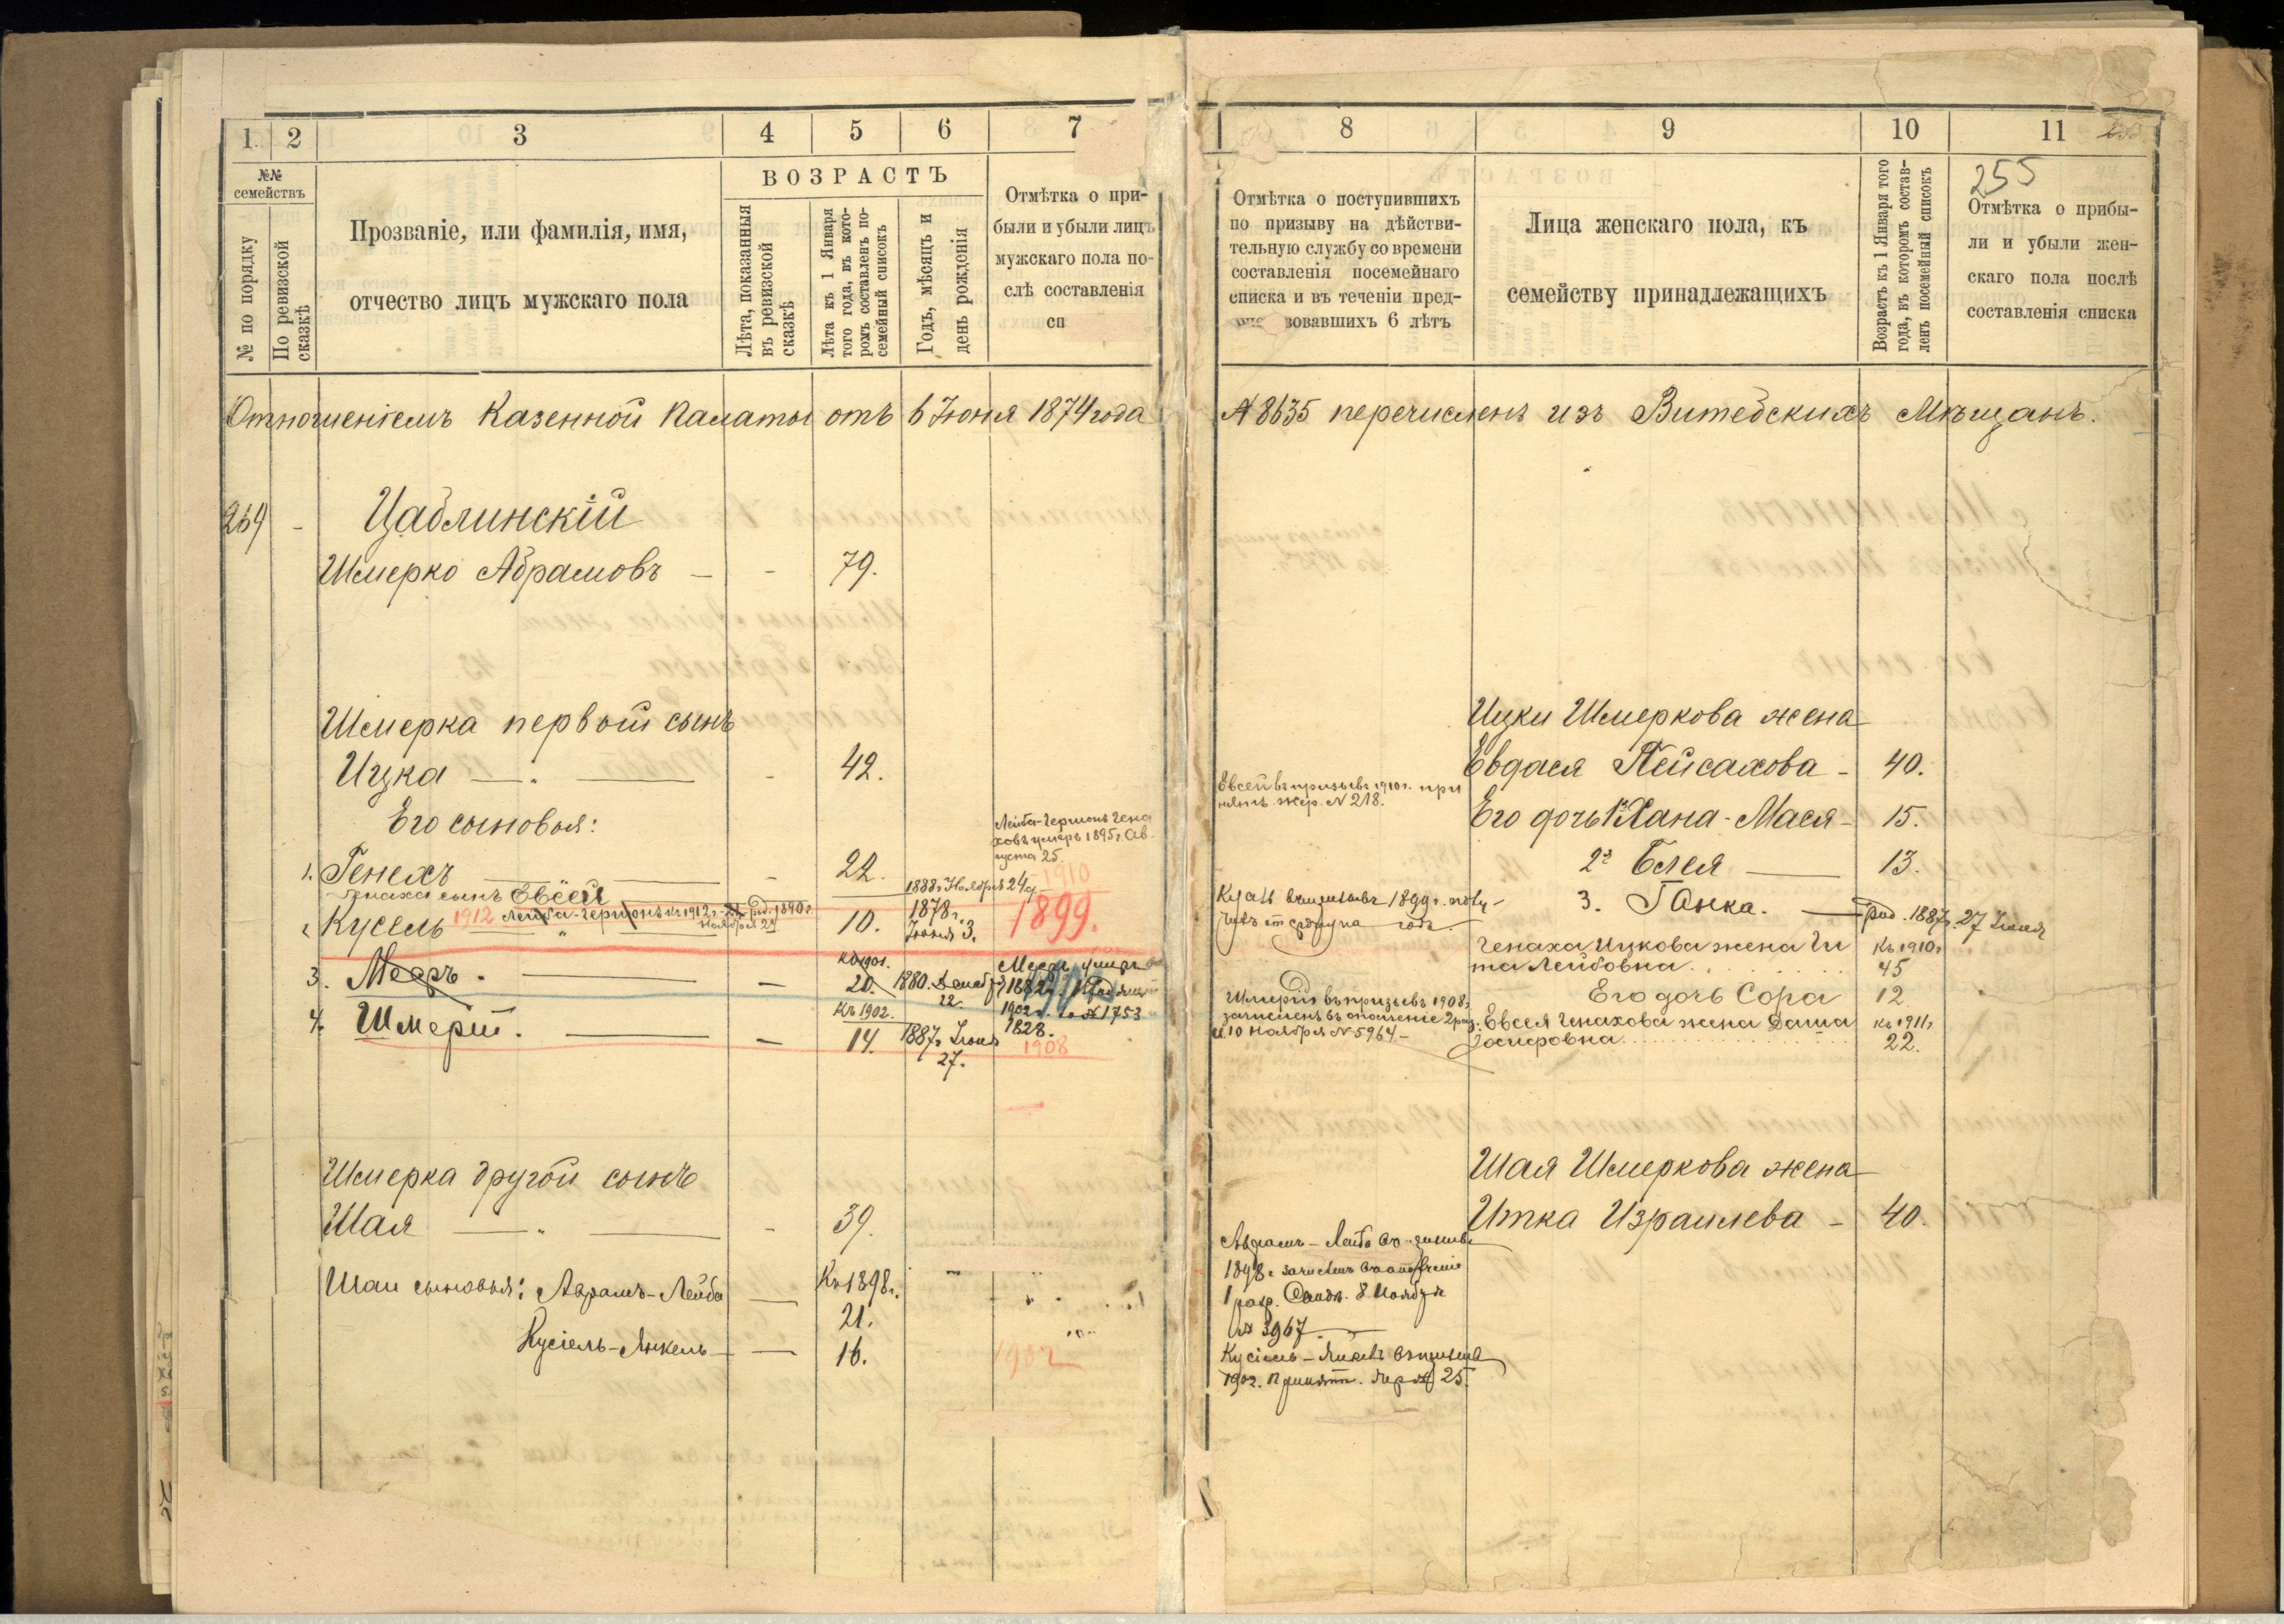 1. 2 3 4 5 6 7
№№ семействъ
№ по порядку
По ревизской сказкѣ
Прозваніе, или фамилія, имя,
отчество лицъ мужскаго пола
ВОЗРАСТЪ
Лѣта, показанныя
въ ревизской
сказкѣ
Лѣта къ 1 Января
того года, въ кото-
ромъ составленъ по-
семейный списокъ
Годъ, мѣсяцъ и
день рожденія
Отмѣтка о при-
были и убыли лицъ
мужскаго пола по-
слѣ составленія
сп
Отношеніемъ Казенной Палаты отъ 6 Іюня 1874 года
264 -
Цаблинскій
Шмерко Абрамовъ — - 79.
Шмерка первый сынъ
Ицка — " — - 42.
Его сыновья:
Лейба-Герионъ Гена
ховъ умеръ 1895 г. Ав-
густа 25.
1. Генехъ — - 22.
Генаха сынъ Евсей 1888 г. Ноября 24 1910
2. Кусель 1912 Лейба-Герионъ къ 1912 г. 21 род. 1890 г.
Ноября 29
10. 1878 г.
Іюня 3. 1899.
3. Мееръ. — — Къ 1901.
20. 1880. Декабря
22. Мееръ умеръ
1902 г. № 1753
4. Шмерій. — — Къ 1902.
14. 1887 г. Іюня
27. 1828.
1908
Шмерка другой сынъ
Шая — " — - 39.
Шаи сыновья: Аврамъ-Лейба — Къ 1898 г.
21.
Кусіель-Янкель — — 16. 1902
8 9 10 11
255
Отмѣтка о поступившихъ
по призыву на дѣйстви-
тельную службу со времени
составленія посемейнаго
списка и въ теченіи пред-
зовавшихъ 6 лѣтъ
Лица женскаго пола, къ
семейству принадлежащихъ
Возрастъ къ 1 Января того
года, въ которомъ состав-
ленъ посемейный списокъ
Отмѣтка о прибы-
ли и убыли жен-
скаго пола послѣ
составленія списка
№ 8635 перечисленъ изъ Витебскихъ Мѣщанъ.
Ицки Шмеркова жена
Евдася Пейсахова - 40.
Евсей въ призывъ 1910 г. при
нятъ жер. № 218.
Его дочь 1 Хана-Мася - 15.
2я Блея — 13.
3. Ганка. — род. 1887 г. 27 Іюня
1899 г.
Генаха Ицкова жена Ги
та Лейбовна. Къ 1910 г
45
Его дочь Сора 12
Шмерій въ призывъ 1908 г.
зачисленъ въ ополченіе 2 раз.
10 Ноября № 5964 —
Евсея Генахова жена Даша
къ 1911 г
22.
Шая Шмеркова жена
Итка Израилева - 40.
Аврамъ-Лейба
1898 г зачисленъ
1 разр. 8 Ноября
№ 3967.
Кусіель-Янкель
1902. Принятъ. жер № 25.